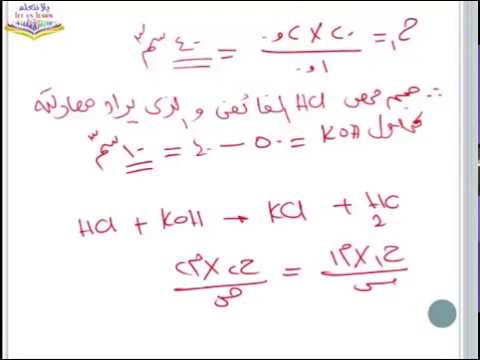 يلا نتعلم
LET US LEARN
ح١ = ٢٠ × ٠,٢ / ٠,١ = ٤٠ سم٣
∴ حجم حمض HCl الفائض والذى يراد معادلته
بمحلول KOH = ٥٠ − ٤٠ = ١٠ سم٣
HCl + KOH → KCl + H2O
ح١ × م١ / س = ح٢ × م٢ / ص